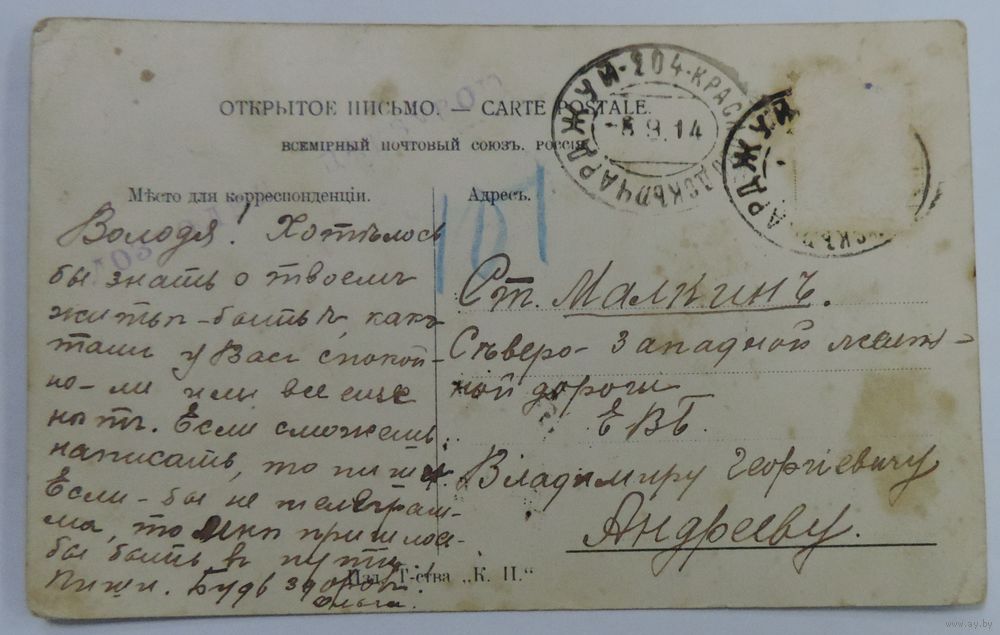 ОТКРЫТОЕ ПИСЬМО. — CARTE POSTALE.
ВСЕМІРНЫЙ ПОЧТОВЫЙ СОЮЗЪ. РОССІЯ.
ЧАРДЖУЙ-204-КРАС
-5 8.14
АРДЖУЙ
Мѣсто для корреспонденціи.
Адресъ.
101
Володя. Хотѣлось
бы знать о твоемъ
житьѣ-бытьѣ, какъ
тамъ у Васъ спокой-
но-ли или все еще
нѣтъ. Если сможешь
написать, то пиши.
Если-бы не телеграм-
ма, то мнѣ пришлось
бы быть въ пути.
Пиши. Будь здоровъ!
Ольга.
Ст. Малкинъ.
Сѣверо-Западной желѣз=
ной дороги
ЕВБ.
Владимиру Георгіевичу
Андрееву.
Изд. Т-ства „К. П."
www.ay.by